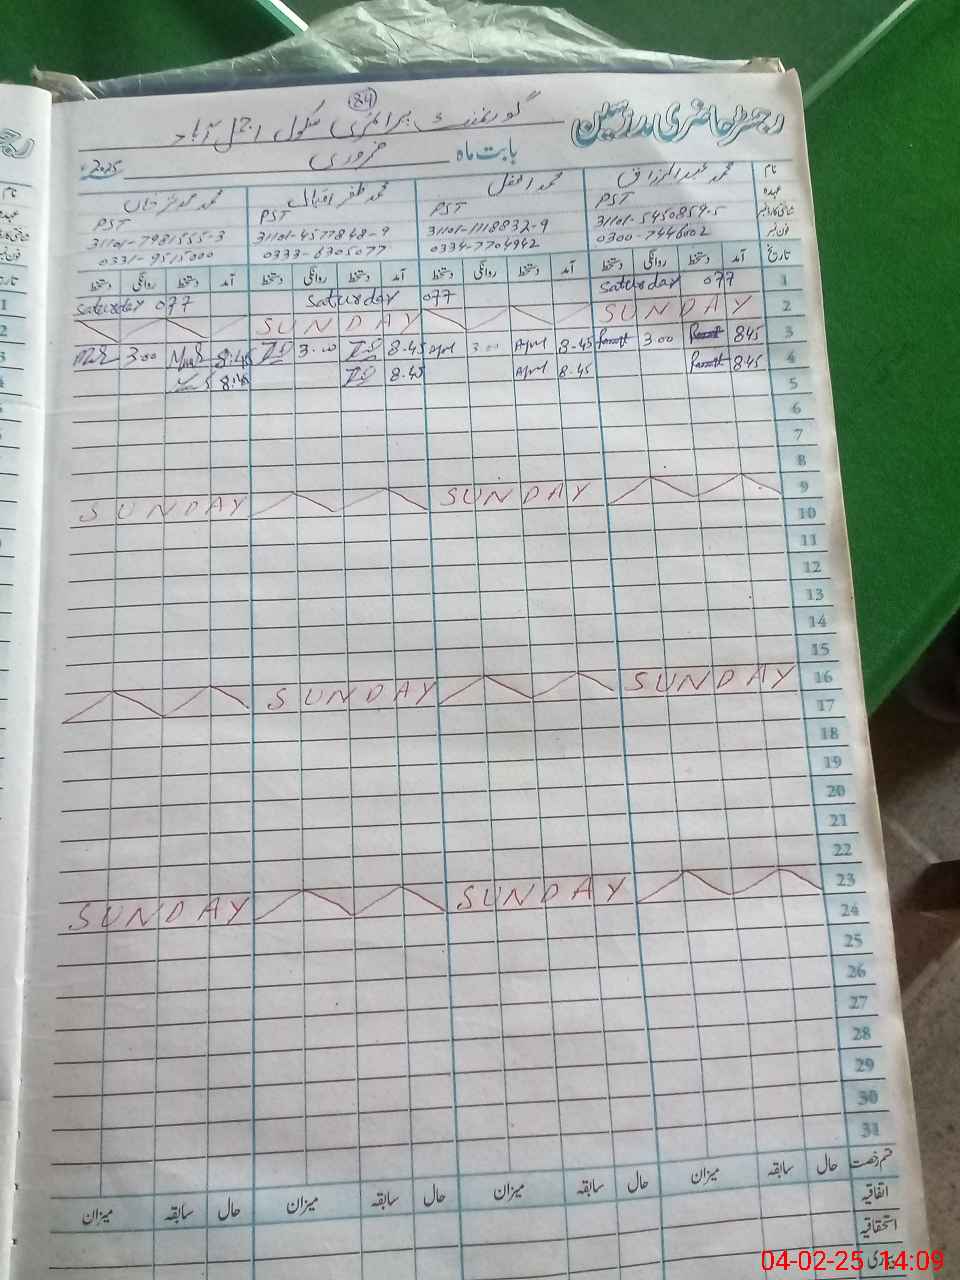 84
رجسٹر حاضری مدرسین گورنمنٹ پرائمری سکول
بابت ماہ فروری 2025
نام محمد عبدالرزاق محمد افضل محمد ظفر اقبال محمد عمر خان
عہدہ PST PST PST PST
31101-5450859-5 31101-1118832-9 31101-4577848-9 31101-7981555-3
فون نمبر 0300-7446002 0334-7704942 0333-6305077 0331-9515000
تاریخ آمد دستخط روانگی دستخط آمد دستخط روانگی دستخط آمد دستخط روانگی دستخط آمد دستخط روانگی دستخط
1 Saturday 077 Saturday 077 Saturday 077
2 SUNDAY SUNDAY
3 845 3.00 8.45 3.00 8.45 3.00 8:45 3.00
4 845 8.45 8.45 8:45
5
6
7
8
9 SUNDAY SUNDAY
10
11
12
13
14
15
16 SUNDAY SUNDAY
17
18
19
20
21
22
23 SUNDAY SUNDAY
24
25
26
27
28
29
30
31
قسم رخصت حال سابقہ میزان حال سابقہ میزان حال سابقہ میزان حال سابقہ میزان
اتفاقیہ
استحقاقیہ
04-02-25 14:09